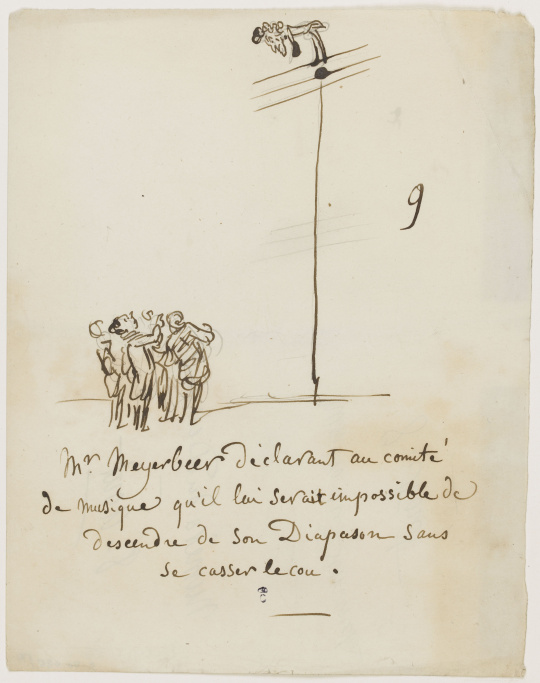 9
Mr Meyerbeer déclarant au comité
de musique qu'il lui serait impossible de
descendre de son Diapason sans
se casser le cou .